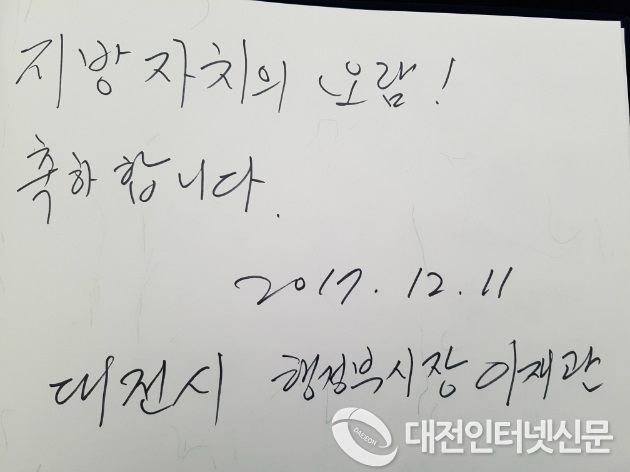 지방자치의 요람!
축하합니다.
2017. 12. 11
대전시 행정부시장 이재관
DAEJEON
대전인터넷신문